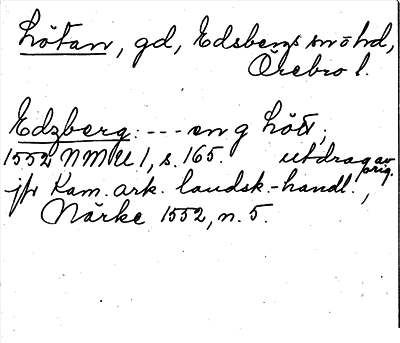 Lötan, gd, Edsbergs sn o hd,
Örebro l.
Edzberg: --- en g Lött,
1552 NMU 1, s. 165. utdrag av orig.
jfr Kam. ark. landsk.-handl.,
Närke 1552, n. 5.